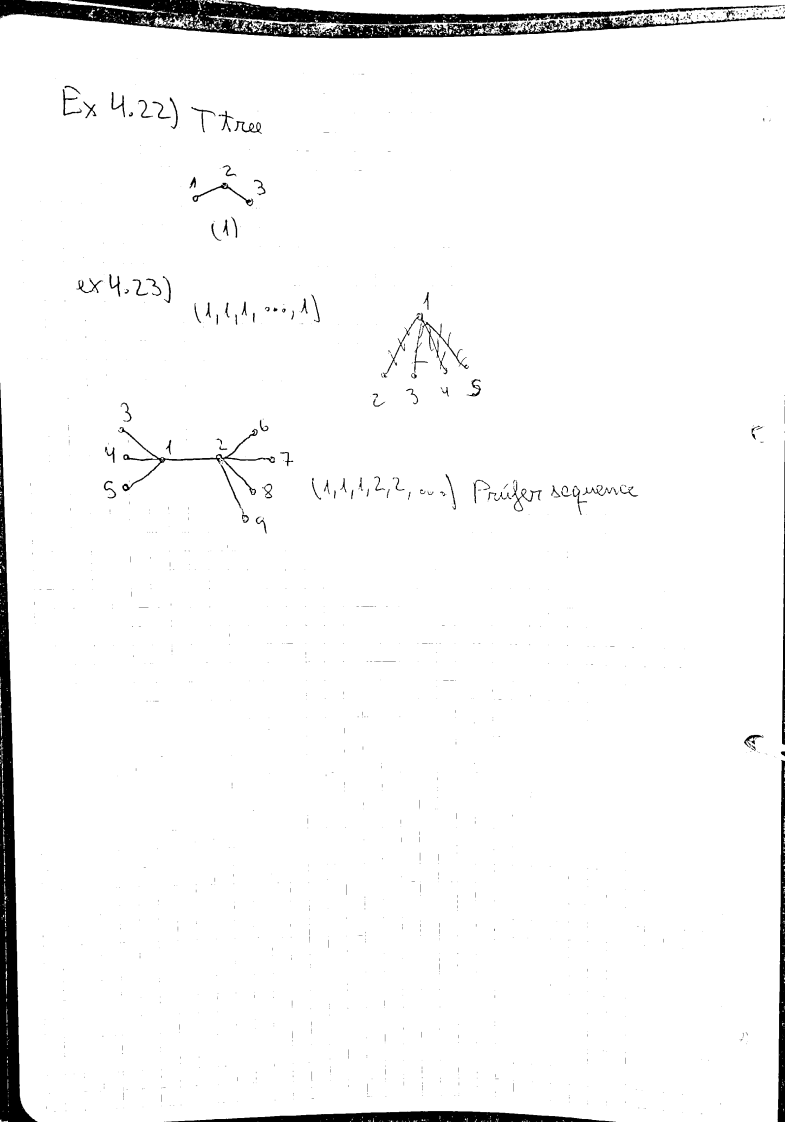 Ex 4.22) T tree
1 2 3
(1)
ex 4.23)
(1,1,1, ..., 1)
1
2 3 4 5
3
4 1 2 6
5 7
8
9
(1,1,1,2,2, ...) Prüfer sequence